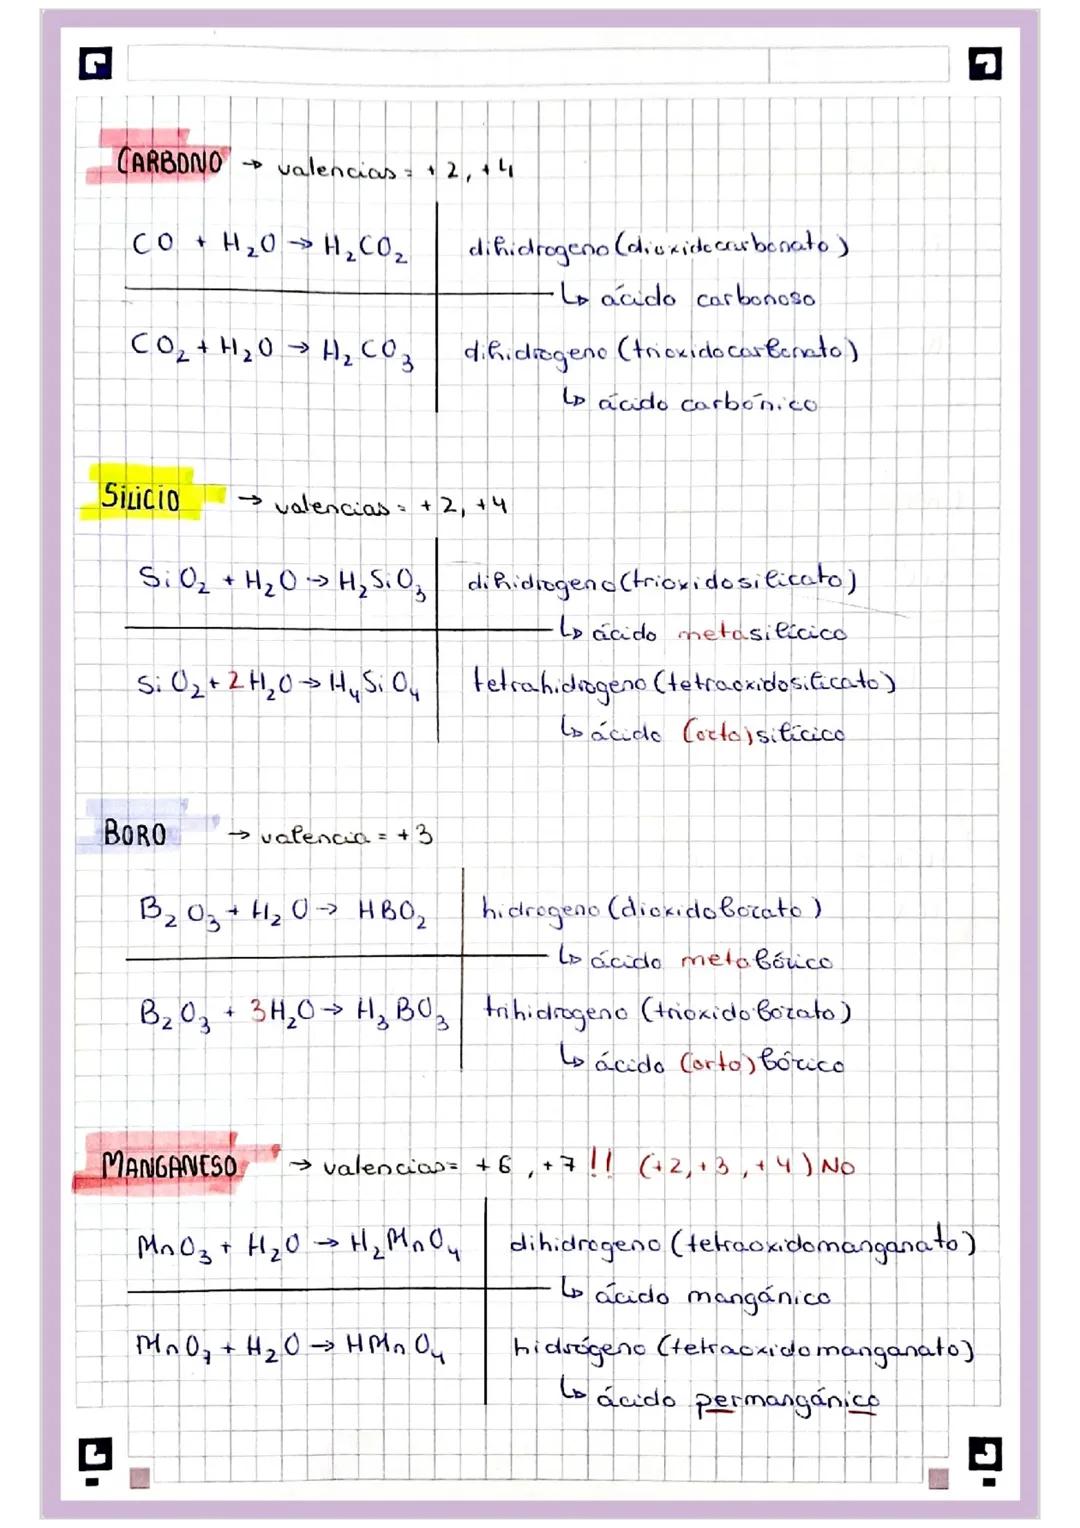 CARBONO → valencias = +2, +4
CO + H₂O → H₂CO₂ dihidrogeno (dioxidocarbonato)
↳ ácido carbonoso
CO₂ + H₂O → H₂CO₃ dihidrogeno (trioxidocarbonato)
↳ ácido carbónico
SILICIO → valencias = +2, +4
SiO₂ + H₂O → H₂SiO₃ dihidrogeno (trioxidosilicato)
↳ ácido metasilícico
SiO₂ + 2H₂O → H₄SiO₄ tetrahidrogeno (tetraoxidosilicato)
↳ ácido (orto)silícico
BORO → valencia = +3
B₂O₃ + H₂O → HBO₂ hidrogeno (dioxidoborato)
↳ ácido metabórico
B₂O₃ + 3H₂O → H₃BO₃ trihidrogeno (trioxidoborato)
↳ ácido (orto)bórico
MANGANESO → valencias = +6, +7 !! (+2, +3, +4) NO
MnO₃ + H₂O → H₂MnO₄ dihidrogeno (tetraoxidomanganato)
↳ ácido mangánico
MnO₇ + H₂O → HMnO₄ hidrógeno (tetraoxidomanganato)
↳ ácido permangánico